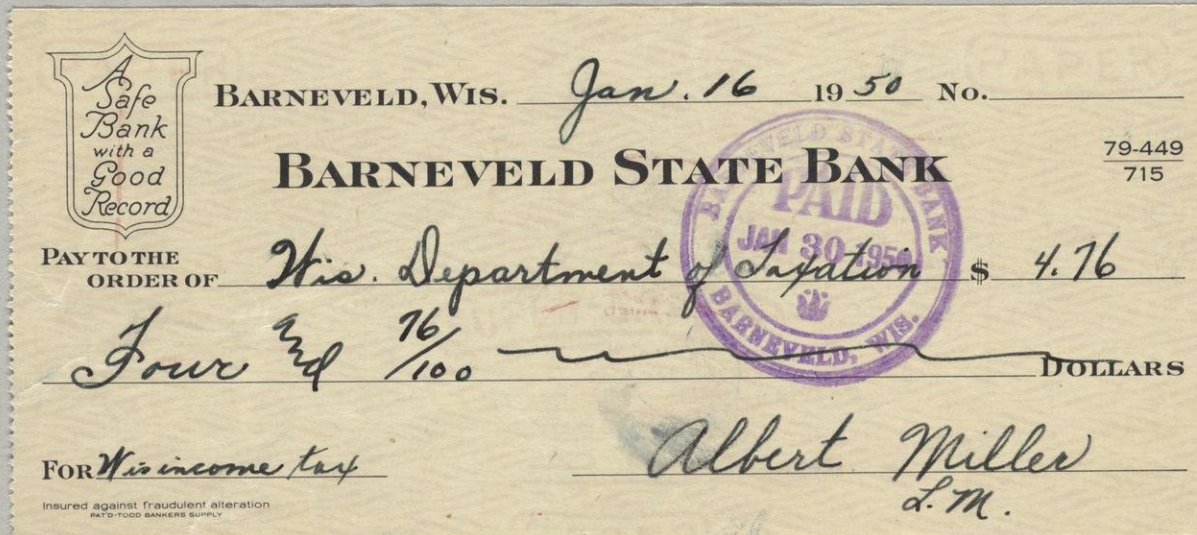 A
Safe
Bank
with a
Good
Record
BARNEVELD, WIS. Jan. 16 1950 No.
BARNEVELD STATE BANK
79-449
715
BARNEVELD STATE BANK
PAID
JAN 30 1950
BARNEVELD, WIS.
PAY TO THE
ORDER OF Wis. Department of Taxation $ 4.76
Four and 76/100 DOLLARS
FOR Wis income tax
Albert Miller
L.M.
Insured against fraudulent alteration
PAT'D-TODD BANKERS SUPPLY